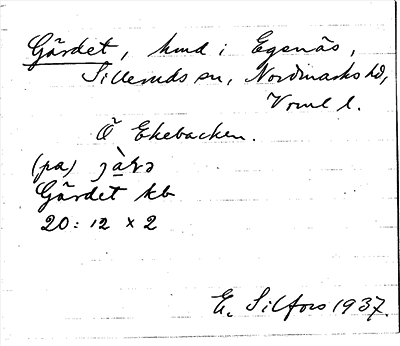 Gärdet, hmd i Egenäs,
Silleruds sn, Nordmarks hd,
Vrml l.
Ö Ekebacken.
(pa) jàɽə
Gärdet kb
20:12 x 2
E. Silfors 1937.